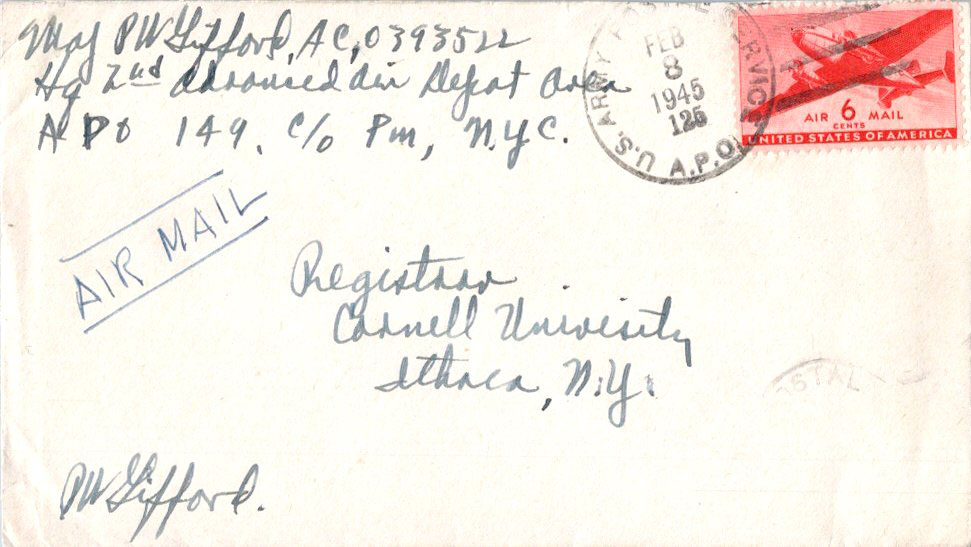 Maj PW Gifford, AC, 0393522
Hq 2nd Advanced Air Depot Area
APO 149. c/o Pm, N.Y.C.
U.S. ARMY A.P.O.
FEB
8
1945
125
AIR 6 MAIL
CENTS
UNITED STATES OF AMERICA
AIR MAIL
Registrar
Cornell University
Ithaca, N.Y.
PW Gifford.